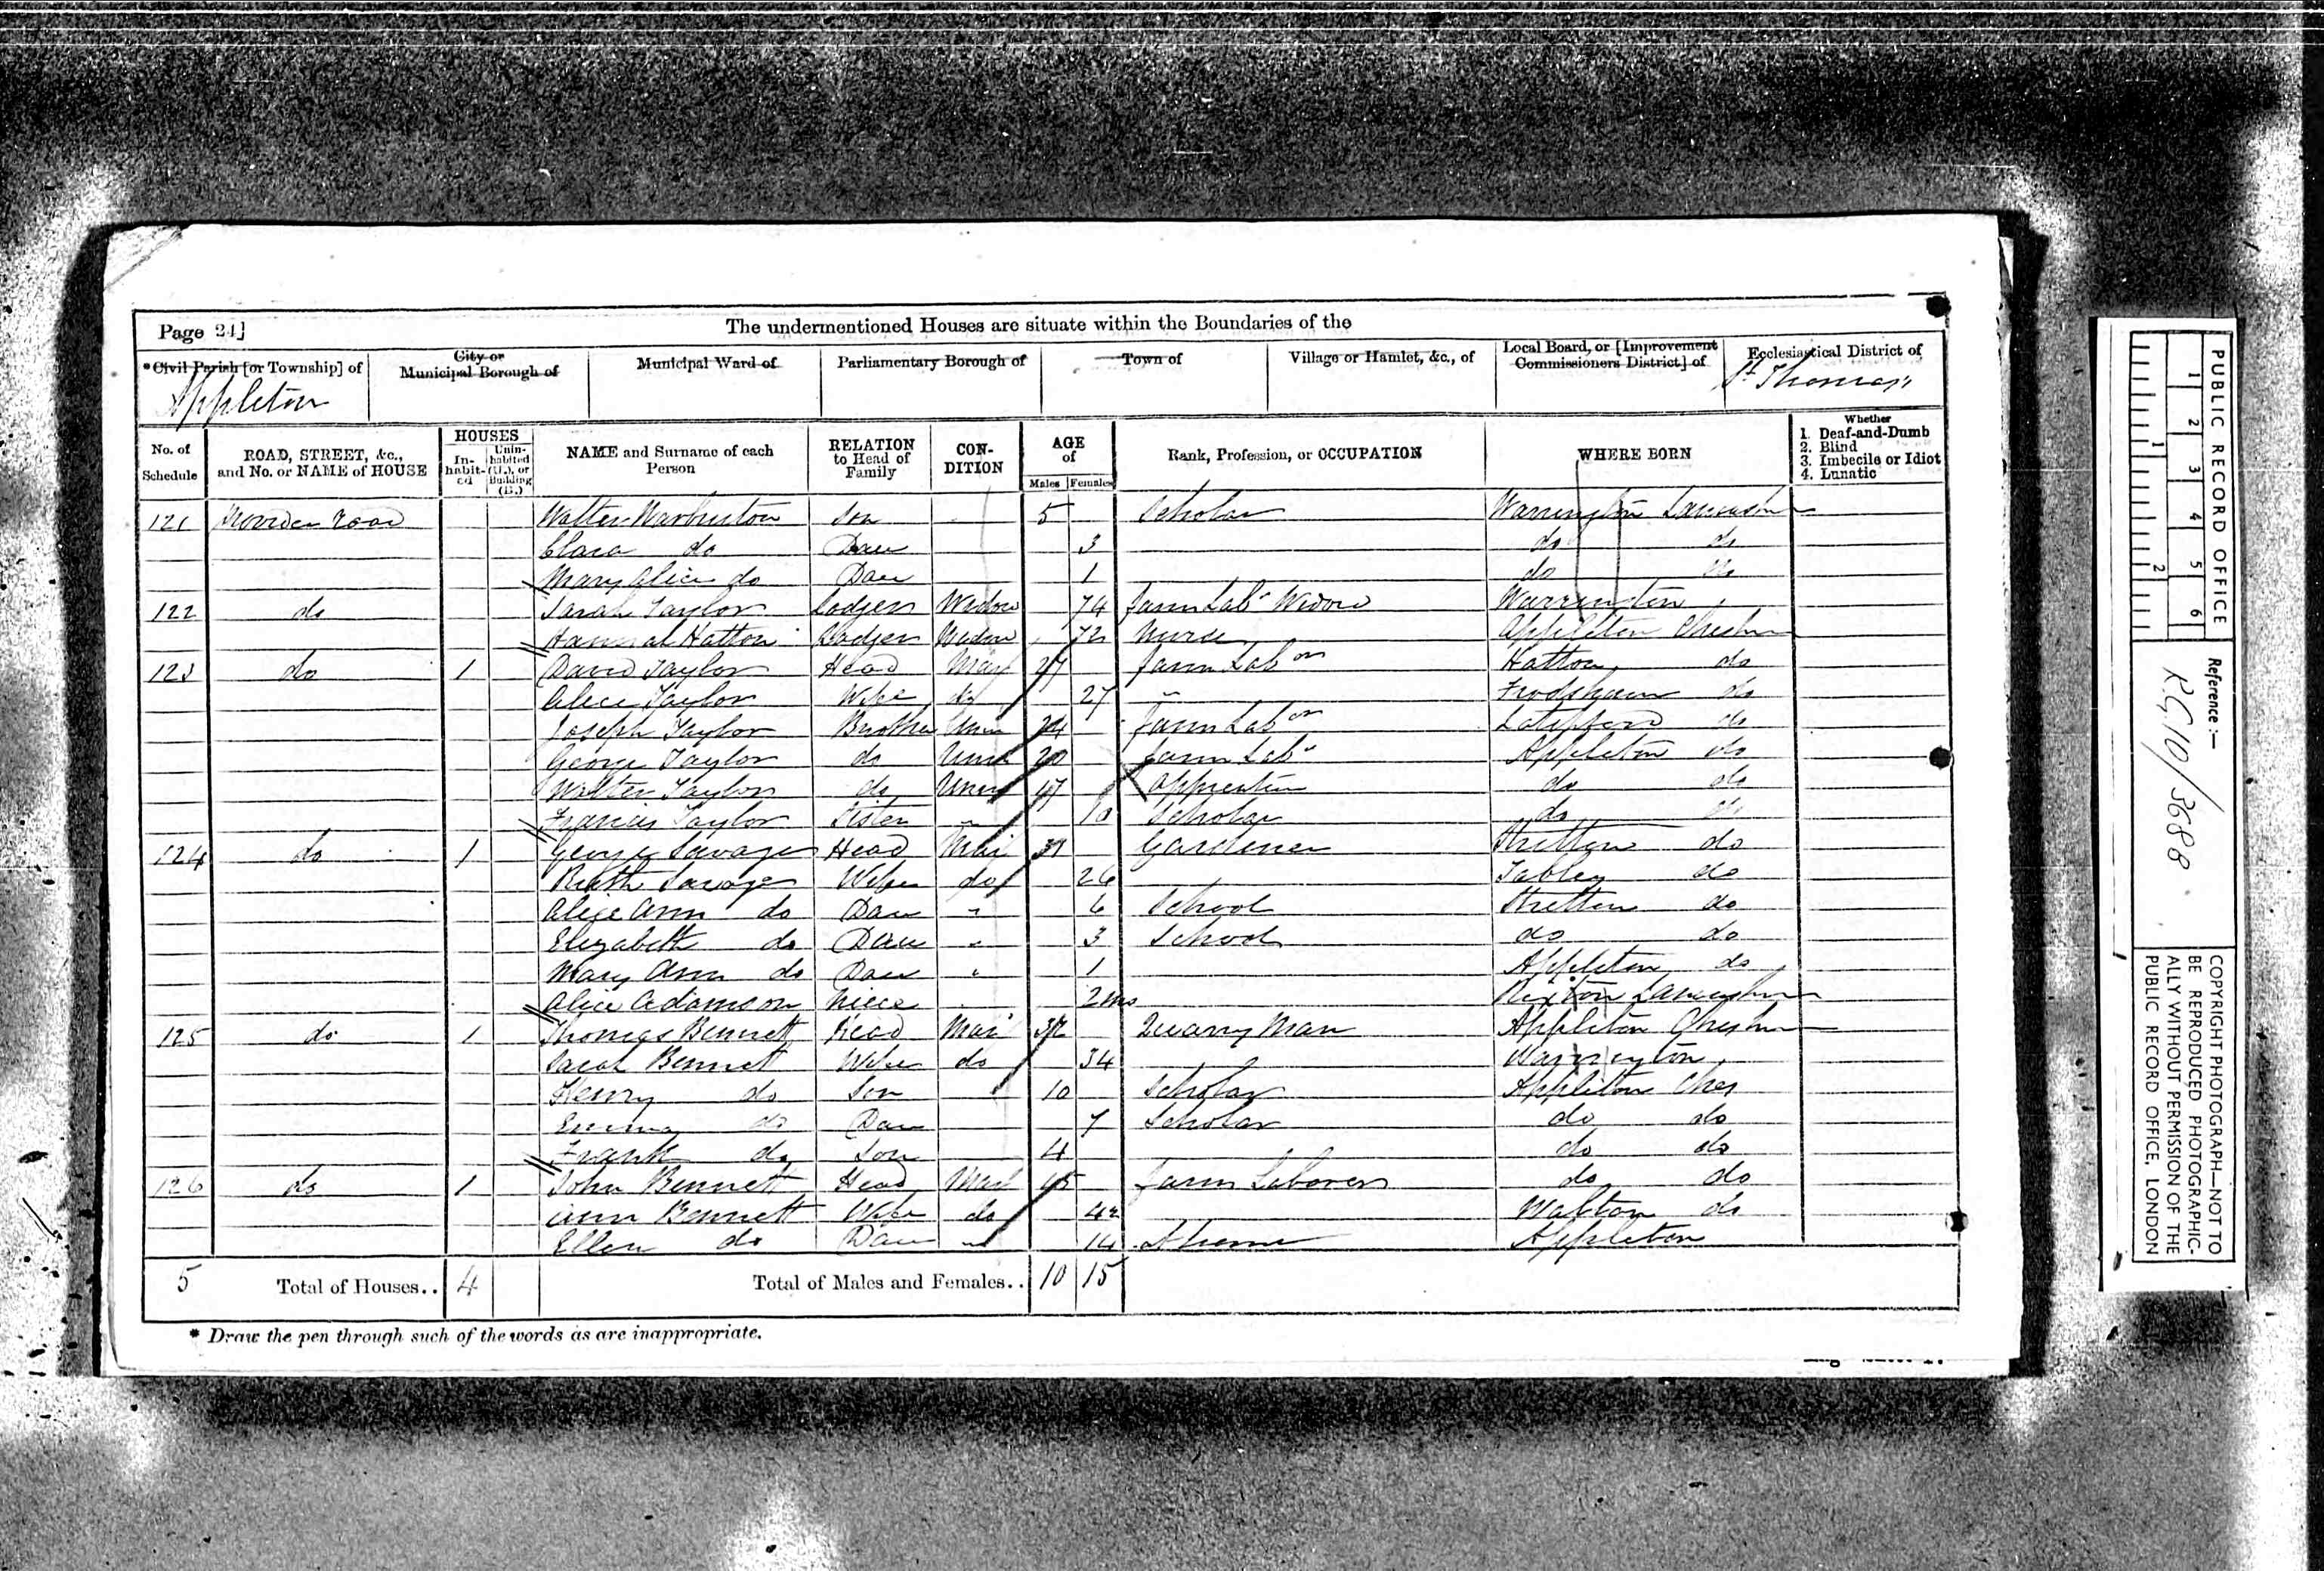 Page 24]
The undermentioned Houses are situate within the Boundaries of the
*Civil Parish [or Township] of
City or Municipal Borough of
Municipal Ward of
Parliamentary Borough of
Town of
Village or Hamlet, &c., of
Local Board, or [Improvement Commissioners District] of
Ecclesiastical District of
Appleton
St Thomas
No. of Schedule
ROAD, STREET, &c., and No. or NAME of HOUSE
HOUSES
In-habit-ed
Unin-habited (U.), or Building (B.)
NAME and Surname of each Person
RELATION to Head of Family
CON-DITION
AGE of
Males Females
Rank, Profession, or OCCUPATION
WHERE BORN
Whether
1. Deaf-and-Dumb
2. Blind
3. Imbecile or Idiot
4. Lunatic
121 Road Walter Warburton Son 5 Scholar Warrington
Clara do Dau 3 do do
Mary Alice do Dau 1 do do
122 do Sarah Taylor Lodger Widow 74 Farm Labr Widow Warrington
Hatton Lodger Widow 72 Nurse Appleton
123 do 1 David Taylor Head Mar 27 Farm Labor Hatton do
Alice Taylor Wife do 27 Frodsham do
Joseph Taylor Brother Unm 24 Farm Labor do
George Taylor do Unm 20 Farm Labr Appleton do
Walter Taylor do Unm 17 do do
Francis Taylor Sister 10 Scholar do do
124 do 1 George Savage Head Mar Gardener Stretton do
Ruth Savage Wife do 26 Tabley do
Alice Ann do Dau 6 School Stretton do
Elizabeth do Dau 3 School do do
Mary Ann do Dau 1 Appleton do
Alice Adamson Niece 2ms Rixton
125 do 1 Thomas Bennett Head Mar Quarry Man Appleton
Sarah Bennett Wife do 34 Warrington
Henry do Son 10 Scholar Appleton Ches
Emma do Dau 7 Scholar do do
Frank do Son 4 do do
126 do 1 John Bennett Head Mar 45 Farm Laborer do do
Ann Bennett Wife do 42 do
Ellen do Dau 14 At home Appleton
5 Total of Houses.. 4 Total of Males and Females.. 10 15
* Draw the pen through such of the words as are inappropriate.
PUBLIC RECORD OFFICE
1 2 3 4 5 6
1 2
Reference:—
R.G. 10/3688
COPYRIGHT PHOTOGRAPH—NOT TO
BE REPRODUCED PHOTOGRAPHIC-
ALLY WITHOUT PERMISSION OF THE
PUBLIC RECORD OFFICE, LONDON